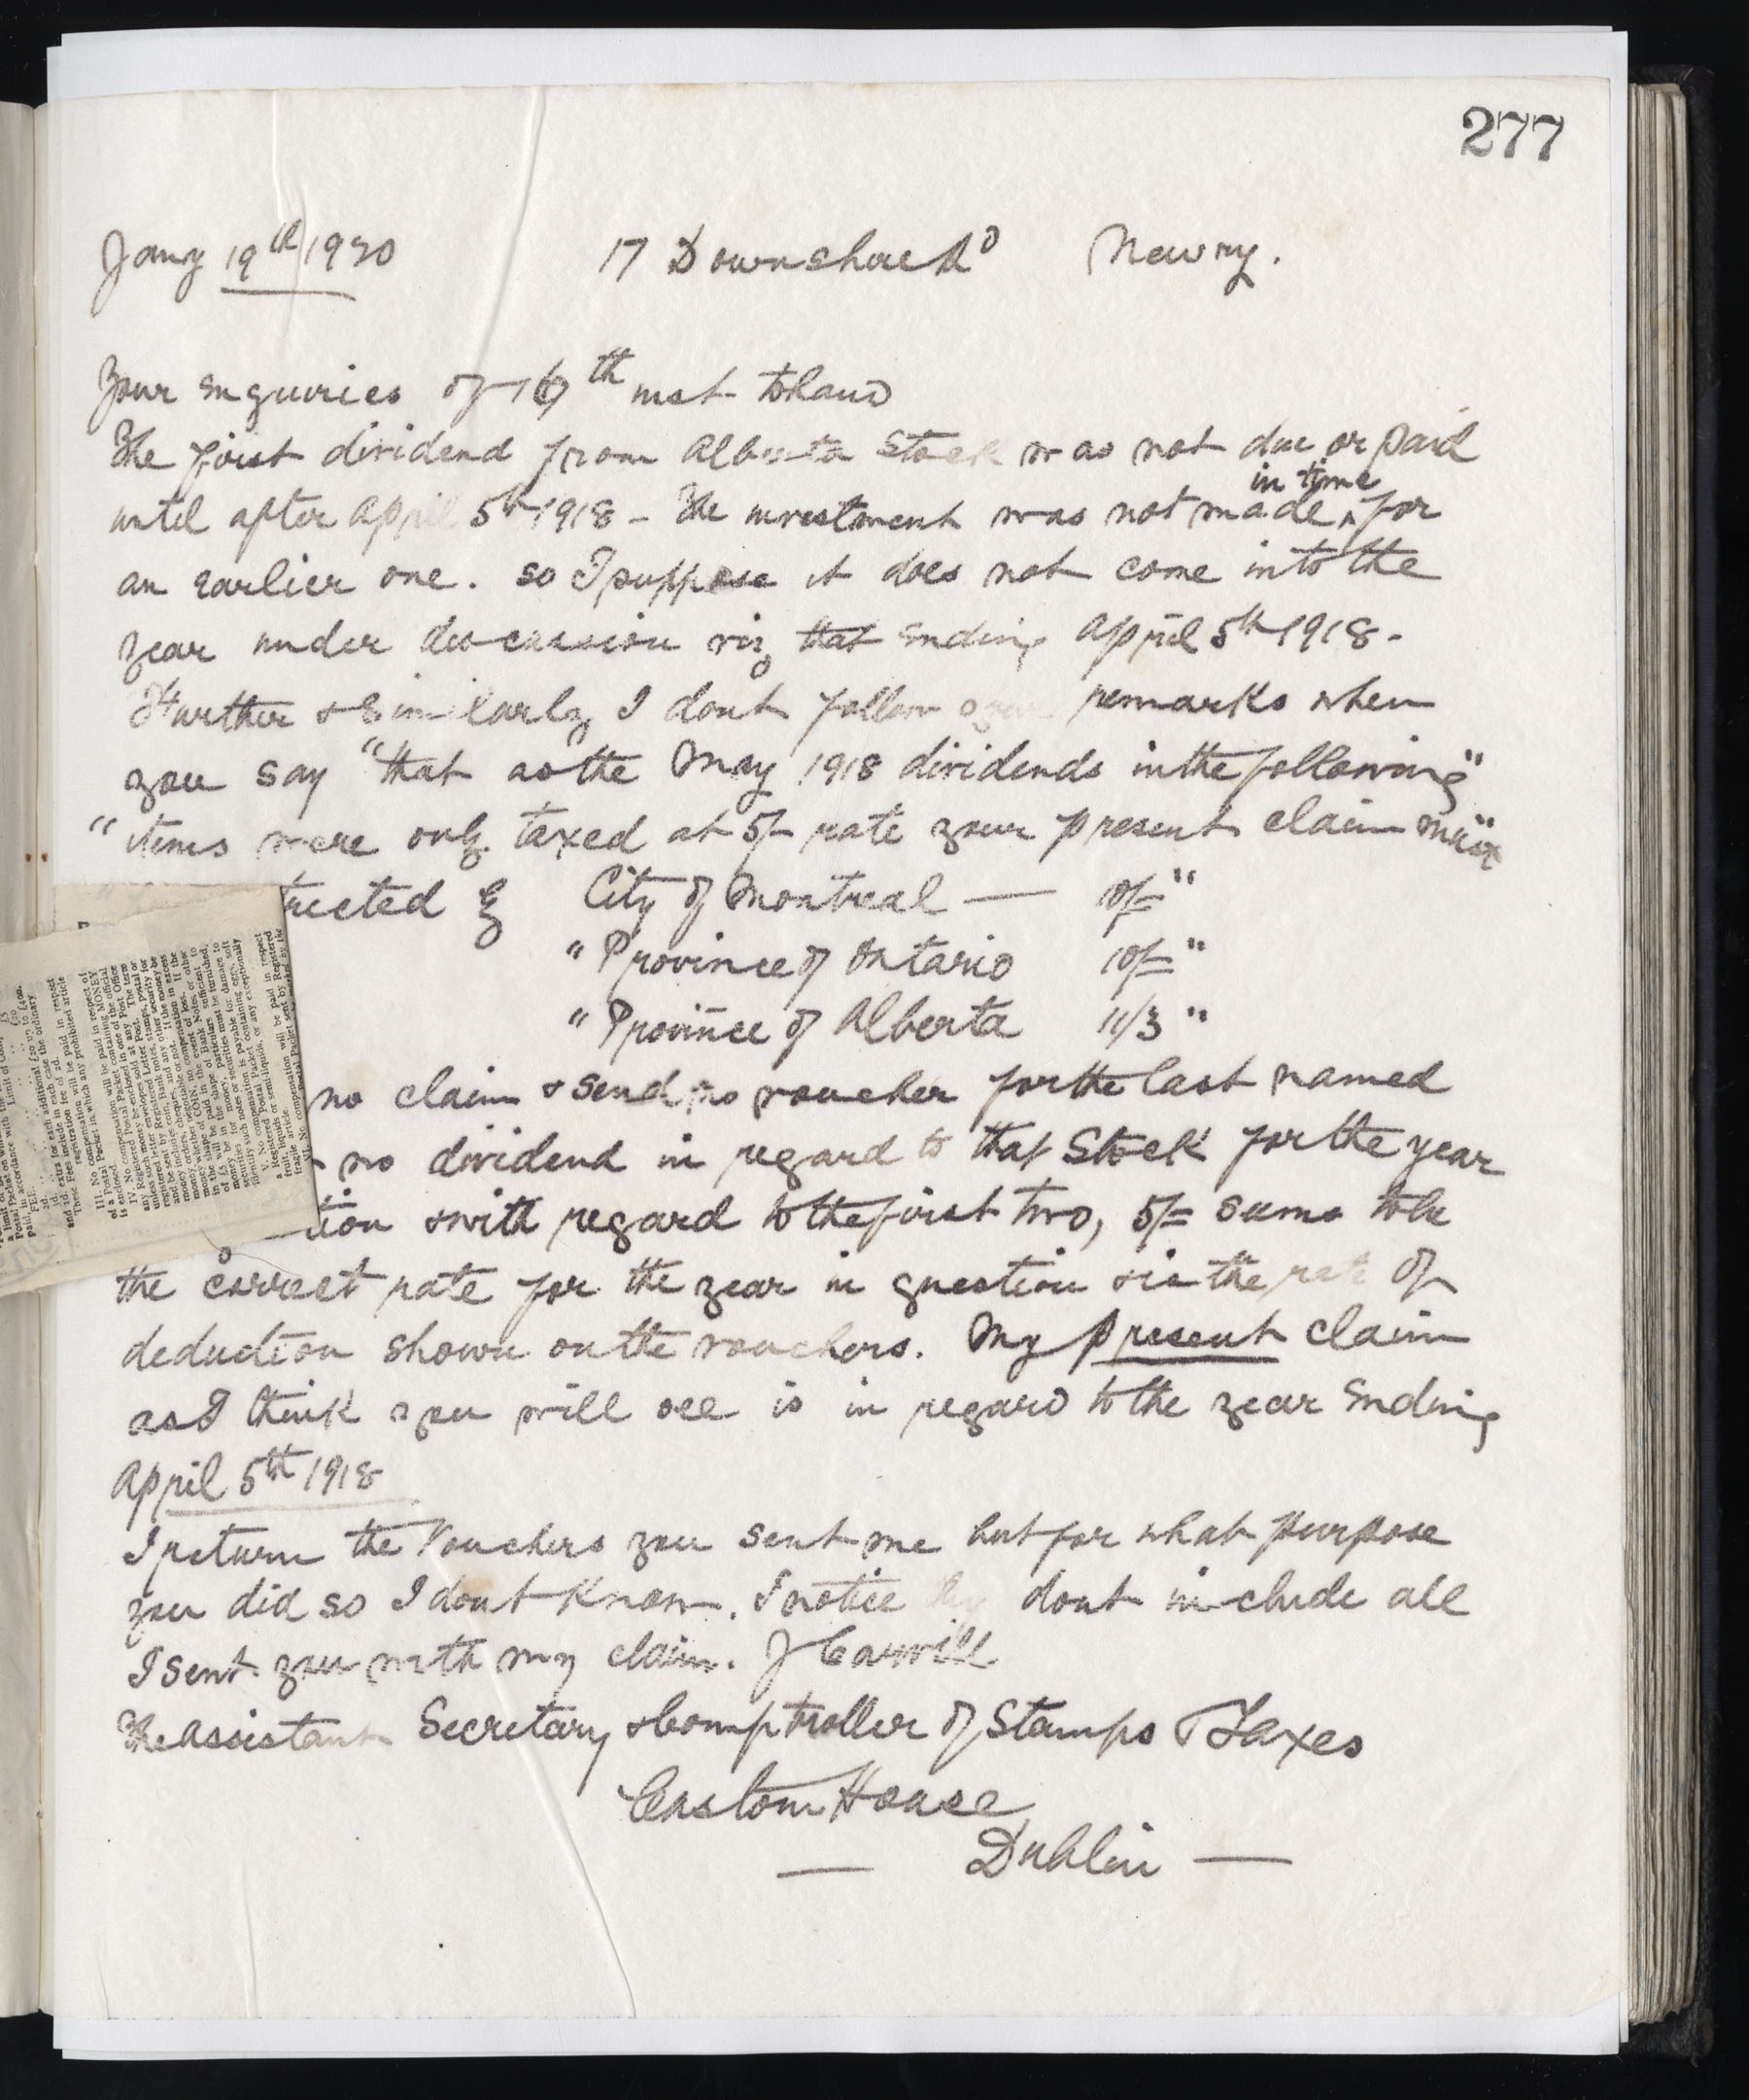 277
Jany 19th/1920 17 Downshire Rd Newry.
Your enquiries of 16th inst to hand
The first dividend from Alberta Stock was not due or paid
in time
until after April 5th 1918 - The investment was not made ^ for
an earlier one. so I suppose it does not come into the
year under discussion viz that ending April 5th 1918 -
Further & similarly I dont follow your remarks when
you say "that as the May 1918 dividends in the following"
"items were only taxed at 5/- rate your present claim must"
tricted by City of Montreal — 10/- "
" Province of Ontario 10/- "
" Province of Alberta 11/3 "
no claim & send no voucher for the last named
no dividend in regard to that Stock for the year
tion & with regard to the first two, 5/= seems to be
the correct rate for the year in question & is the rate of
deduction shown on the vouchers. My present claim
as I think you will see is in regard to the year ending
April 5th 1918
I return the Vouchers you sent me but for what purpose
you did so I dont know. I notice they dont include all
I sent you with my claim. J Carvill
The Assistant Secretary & Comptroller of Stamps & Taxes
Custom House
— Dublin —
III. No compensation will be paid in respect of
a Postal Packet containing MONEY